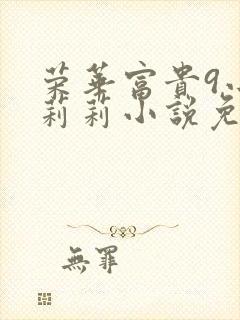 荣華富貴9、
莉莉小說免
無罪